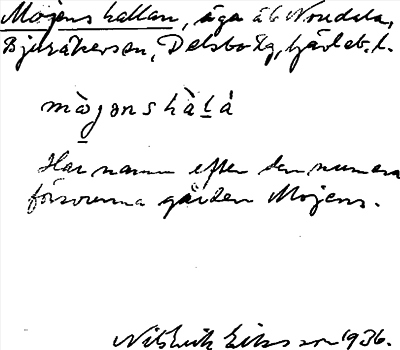 Mojens hallan, äga åt Norrdala,
Bjuråkersvn, Delsbo tg, Gävleb. l.
mòjənshàlá
Har namn efter den numera
försvunna gården Mojens.
Nils Erik Eriksson 1936.